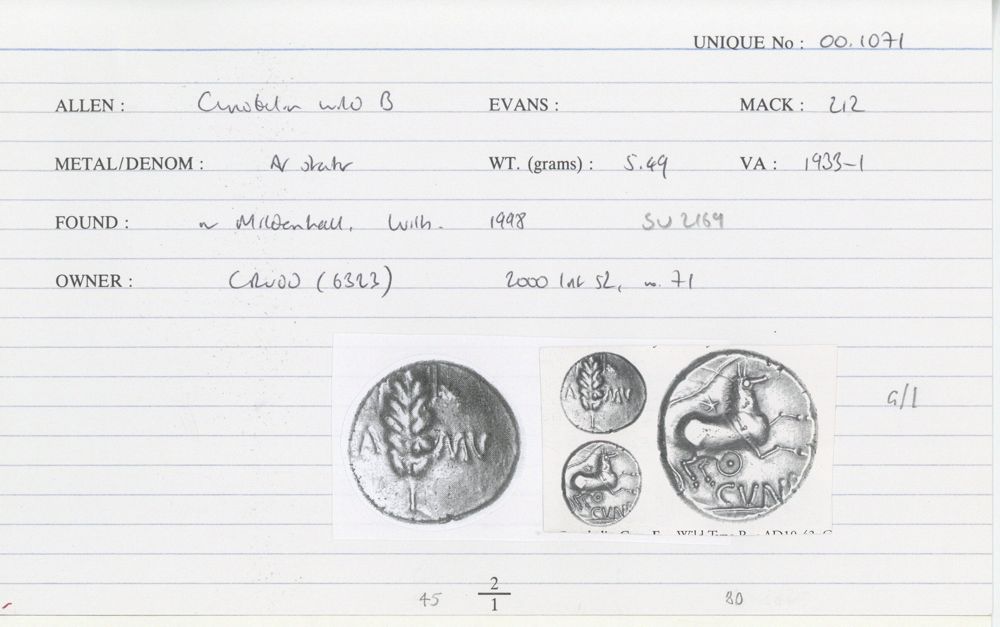 UNIQUE No : 00.1071
ALLEN : Cunobelin wild B EVANS : MACK : 212
METAL/DENOM : AV stater WT. (grams) : 5.49 VA : 1933-1
FOUND : nr Mildenhall, Wilts. 1998 SU 2169
OWNER : CRUDD (6323) 2000 list 52, no. 71
A MV
CVN
a/1
45 2/1 80